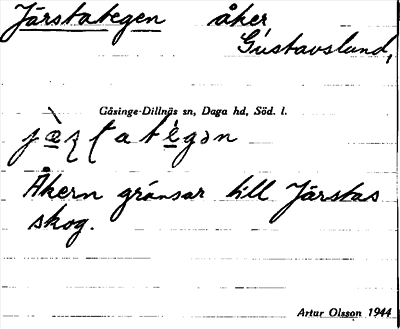 Järstategen åker
Gustavslund,
Gåsinge-Dillnäs sn, Daga hd, Söd. l.
Åkern gränsar till Järstas
skog.
Artur Olsson 1944